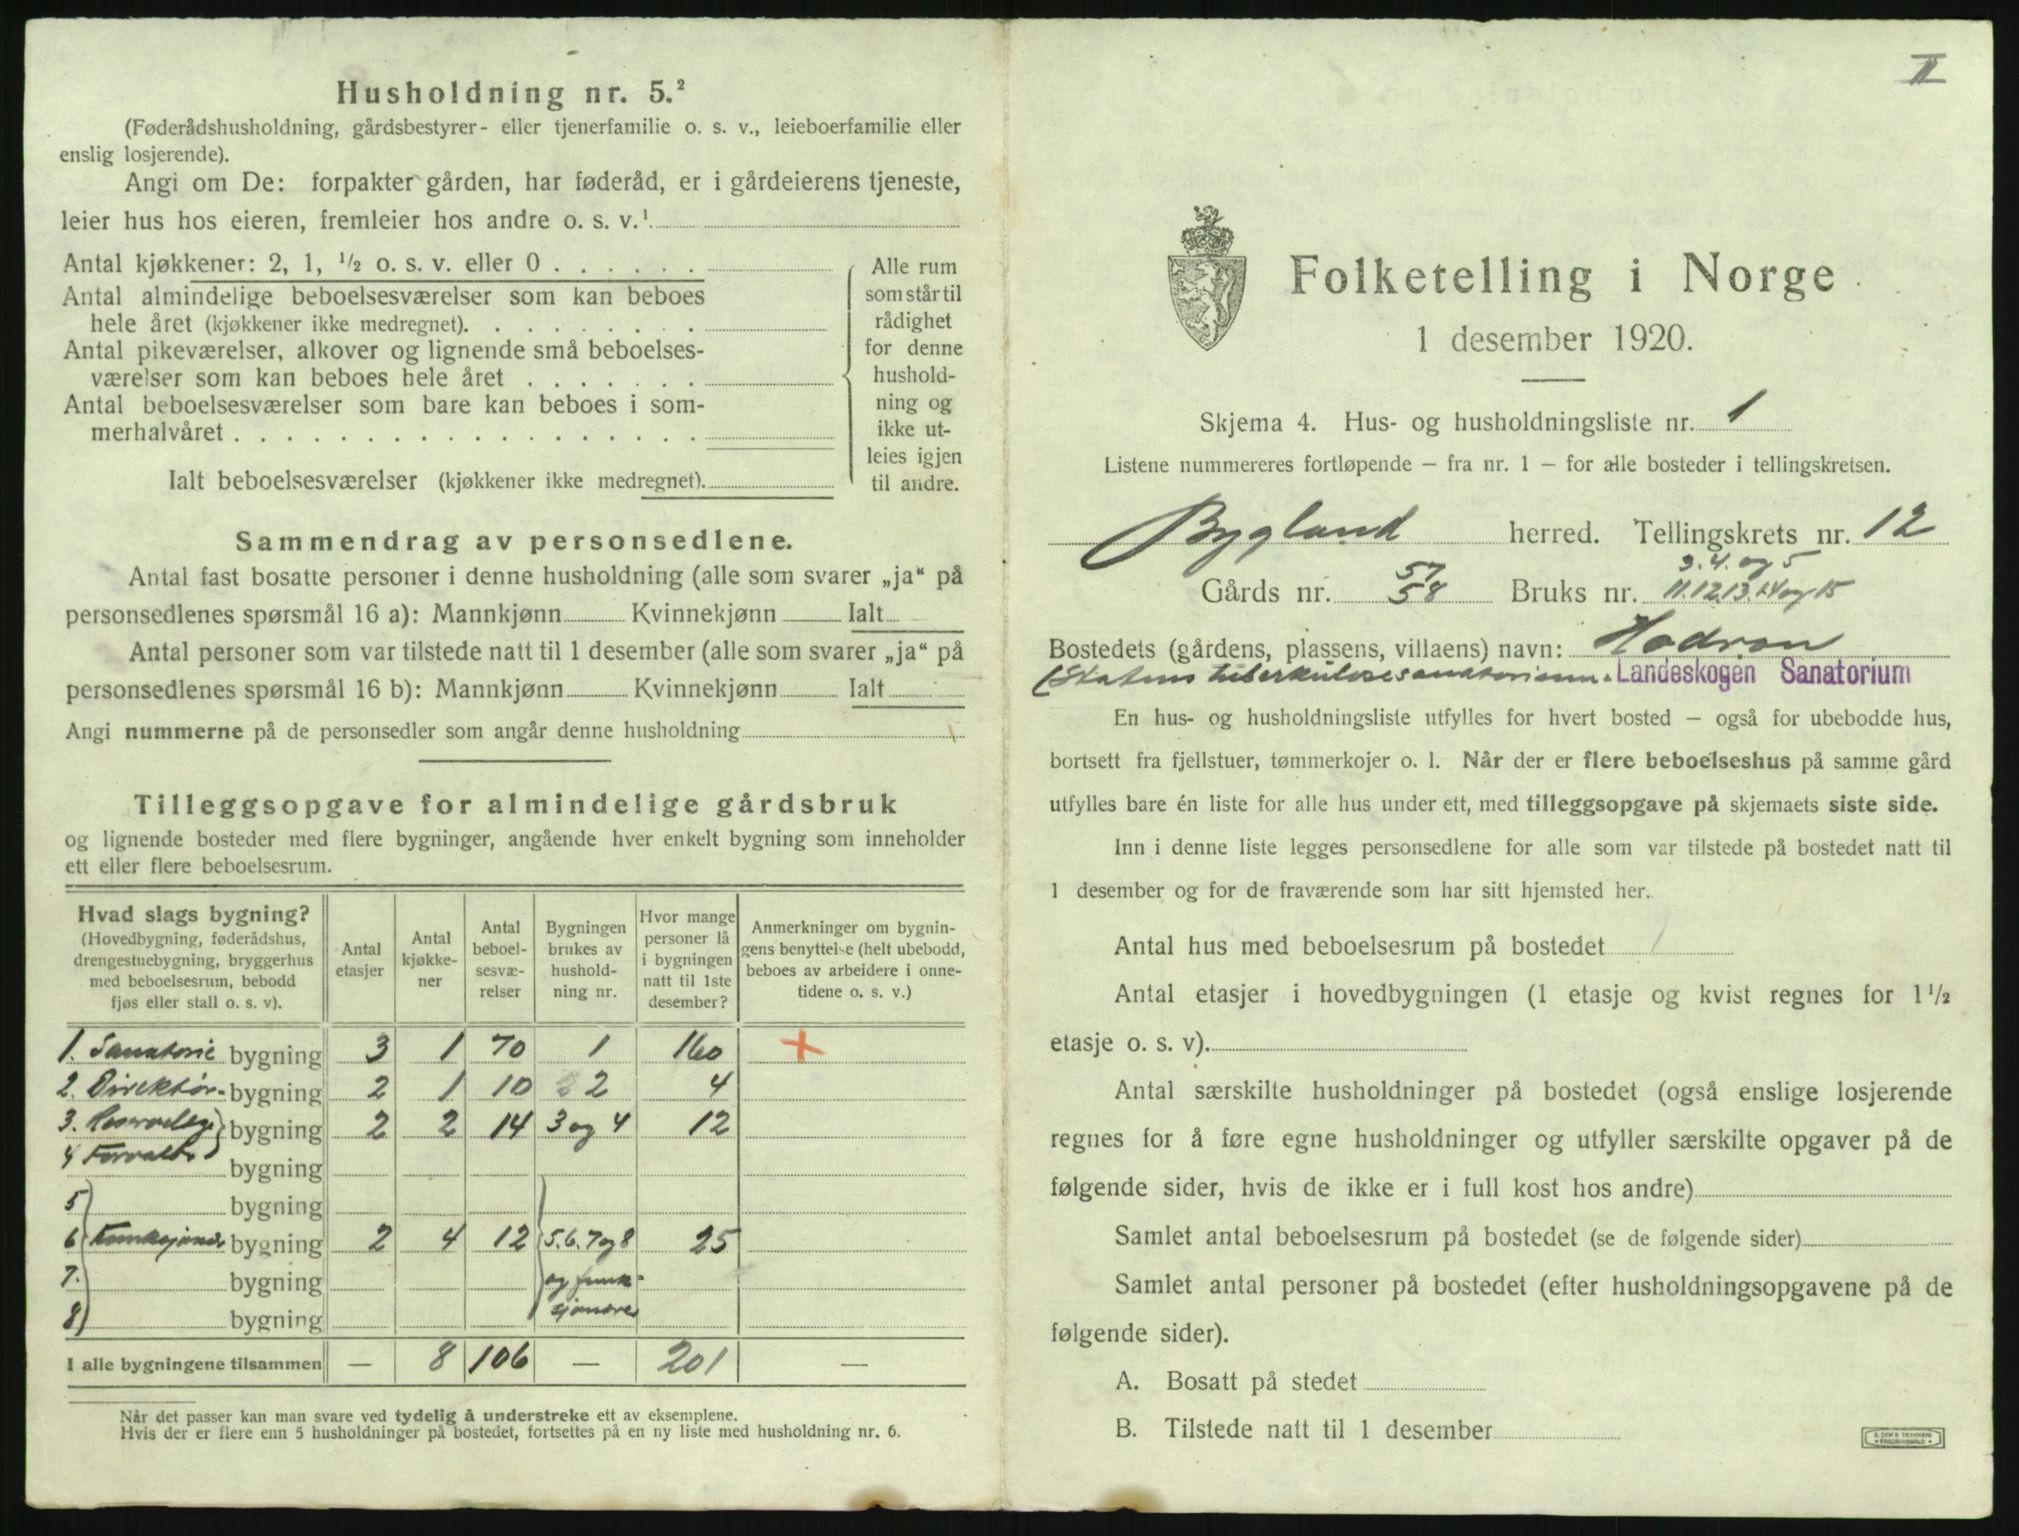 Husholdning nr. 5.²
(Føderådshusholdning, gårdsbestyrer- eller tjenerfamilie o. s. v., leieboerfamilie eller
enslig losjerende).
Angi om De: forpakter gården, har føderåd, er i gårdeierens tjeneste,
leier hus hos eieren, fremleier hos andre o. s. v.¹
Antal kjøkkener: 2, 1, ½ o. s. v. eller 0 . . . . . .
Antal almindelige beboelsesværelser som kan beboes
hele året (kjøkkener ikke medregnet). . . . . . . . .
Antal pikeværelser, alkover og lignende små beboelses-
værelser som kan beboes hele året . . . . . . .
Antal beboelsesværelser som bare kan beboes i som-
merhalvåret . . . . . . . . . . . . . . . . . .
Ialt beboelsesværelser (kjøkkener ikke medregnet).
Alle rum
som står til
rådighet
for denne
hushold-
ning og
ikke ut-
leies igjen
til andre.
Sammendrag av personsedlene.
Antal fast bosatte personer i denne husholdning (alle som svarer „ja“ på
personsedlenes spørsmål 16 a): Mannkjønn Kvinnekjønn Ialt
Antal personer som var tilstede natt til 1 desember (alle som svarer „ja“ på
personsedlenes spørsmål 16 b): Mannkjønn Kvinnekjønn Ialt
Angi nummerne på de personsedler som angår denne husholdning
Tilleggsopgave for almindelige gårdsbruk
og lignende bosteder med flere bygninger, angående hver enkelt bygning som inneholder
ett eller flere beboelsesrum.
Hvad slags bygning?
(Hovedbygning, føderådshus,
drengestuebygning, bryggerhus
med beboelsesrum, bebodd
fjøs eller stall o. s. v).
Antal
etasjer
Antal
kjøkke-
ner
Antal
beboel-
sesvæ-
relser
Bygningen
brukes av
hushold-
ning nr.
Hvor mange
personer lå
i bygningen
natt til 1ste
desember?
Anmerkninger om bygnin-
gens benyttelse (helt ubebodd,
beboes av arbeidere i onne-
tidene o. s. v.)
1. Sanatorie bygning 3 1 70 1 160 +
2. Direktør- bygning 2 1 10 2 4
3. bygning 2 2 14 3 og 4 12
4 bygning
5 bygning
6 Funksjonær bygning 2 4 12 5.6.7og8 25
7. bygning og funk-
8 bygning sjonære
I alle bygningene tilsammen — 8 106 — 201 —
Når det passer kan man svare ved tydelig å understreke ett av eksemplene.
Hvis der er flere enn 5 husholdninger på bostedet, fortsettes på en ny liste med husholdning nr. 6.
II
Folketelling i Norge
1 desember 1920.
Skjema 4. Hus- og husholdningsliste nr. 1
Listene nummereres fortløpende — fra nr. 1 — for alle bosteder i tellingskretsen.
Bygland herred. Tellingskrets nr. 12
57 3.4. og 5
Gårds nr. 58 Bruks nr. 11.12.13.14 og 15
Bostedets (gårdens, plassens, villaens) navn:
(Statens tuberkulosesanatorium. Landeskogen Sanatorium
En hus- og husholdningsliste utfylles for hvert bosted — også for ubebodde hus,
bortsett fra fjellstuer, tømmerkojer o. l. Når der er flere beboelseshus på samme gård
utfylles bare én liste for alle hus under ett, med tilleggsopgave på skjemaets siste side.
Inn i denne liste legges personsedlene for alle som var tilstede på bostedet natt til
1 desember og for de fraværende som har sitt hjemsted her.
Antal hus med beboelsesrum på bostedet
Antal etasjer i hovedbygningen (1 etasje og kvist regnes for 1½
etasje o. s. v).
Antal særskilte husholdninger på bostedet (også enslige losjerende
regnes for å føre egne husholdninger og utfyller særskilte opgaver på de
følgende sider, hvis de ikke er i full kost hos andre)
Samlet antal beboelsesrum på bostedet (se de følgende sider)
Samlet antal personer på bostedet (efter husholdningsopgavene på de
følgende sider).
A. Bosatt på stedet
B. Tilstede natt til 1 desember